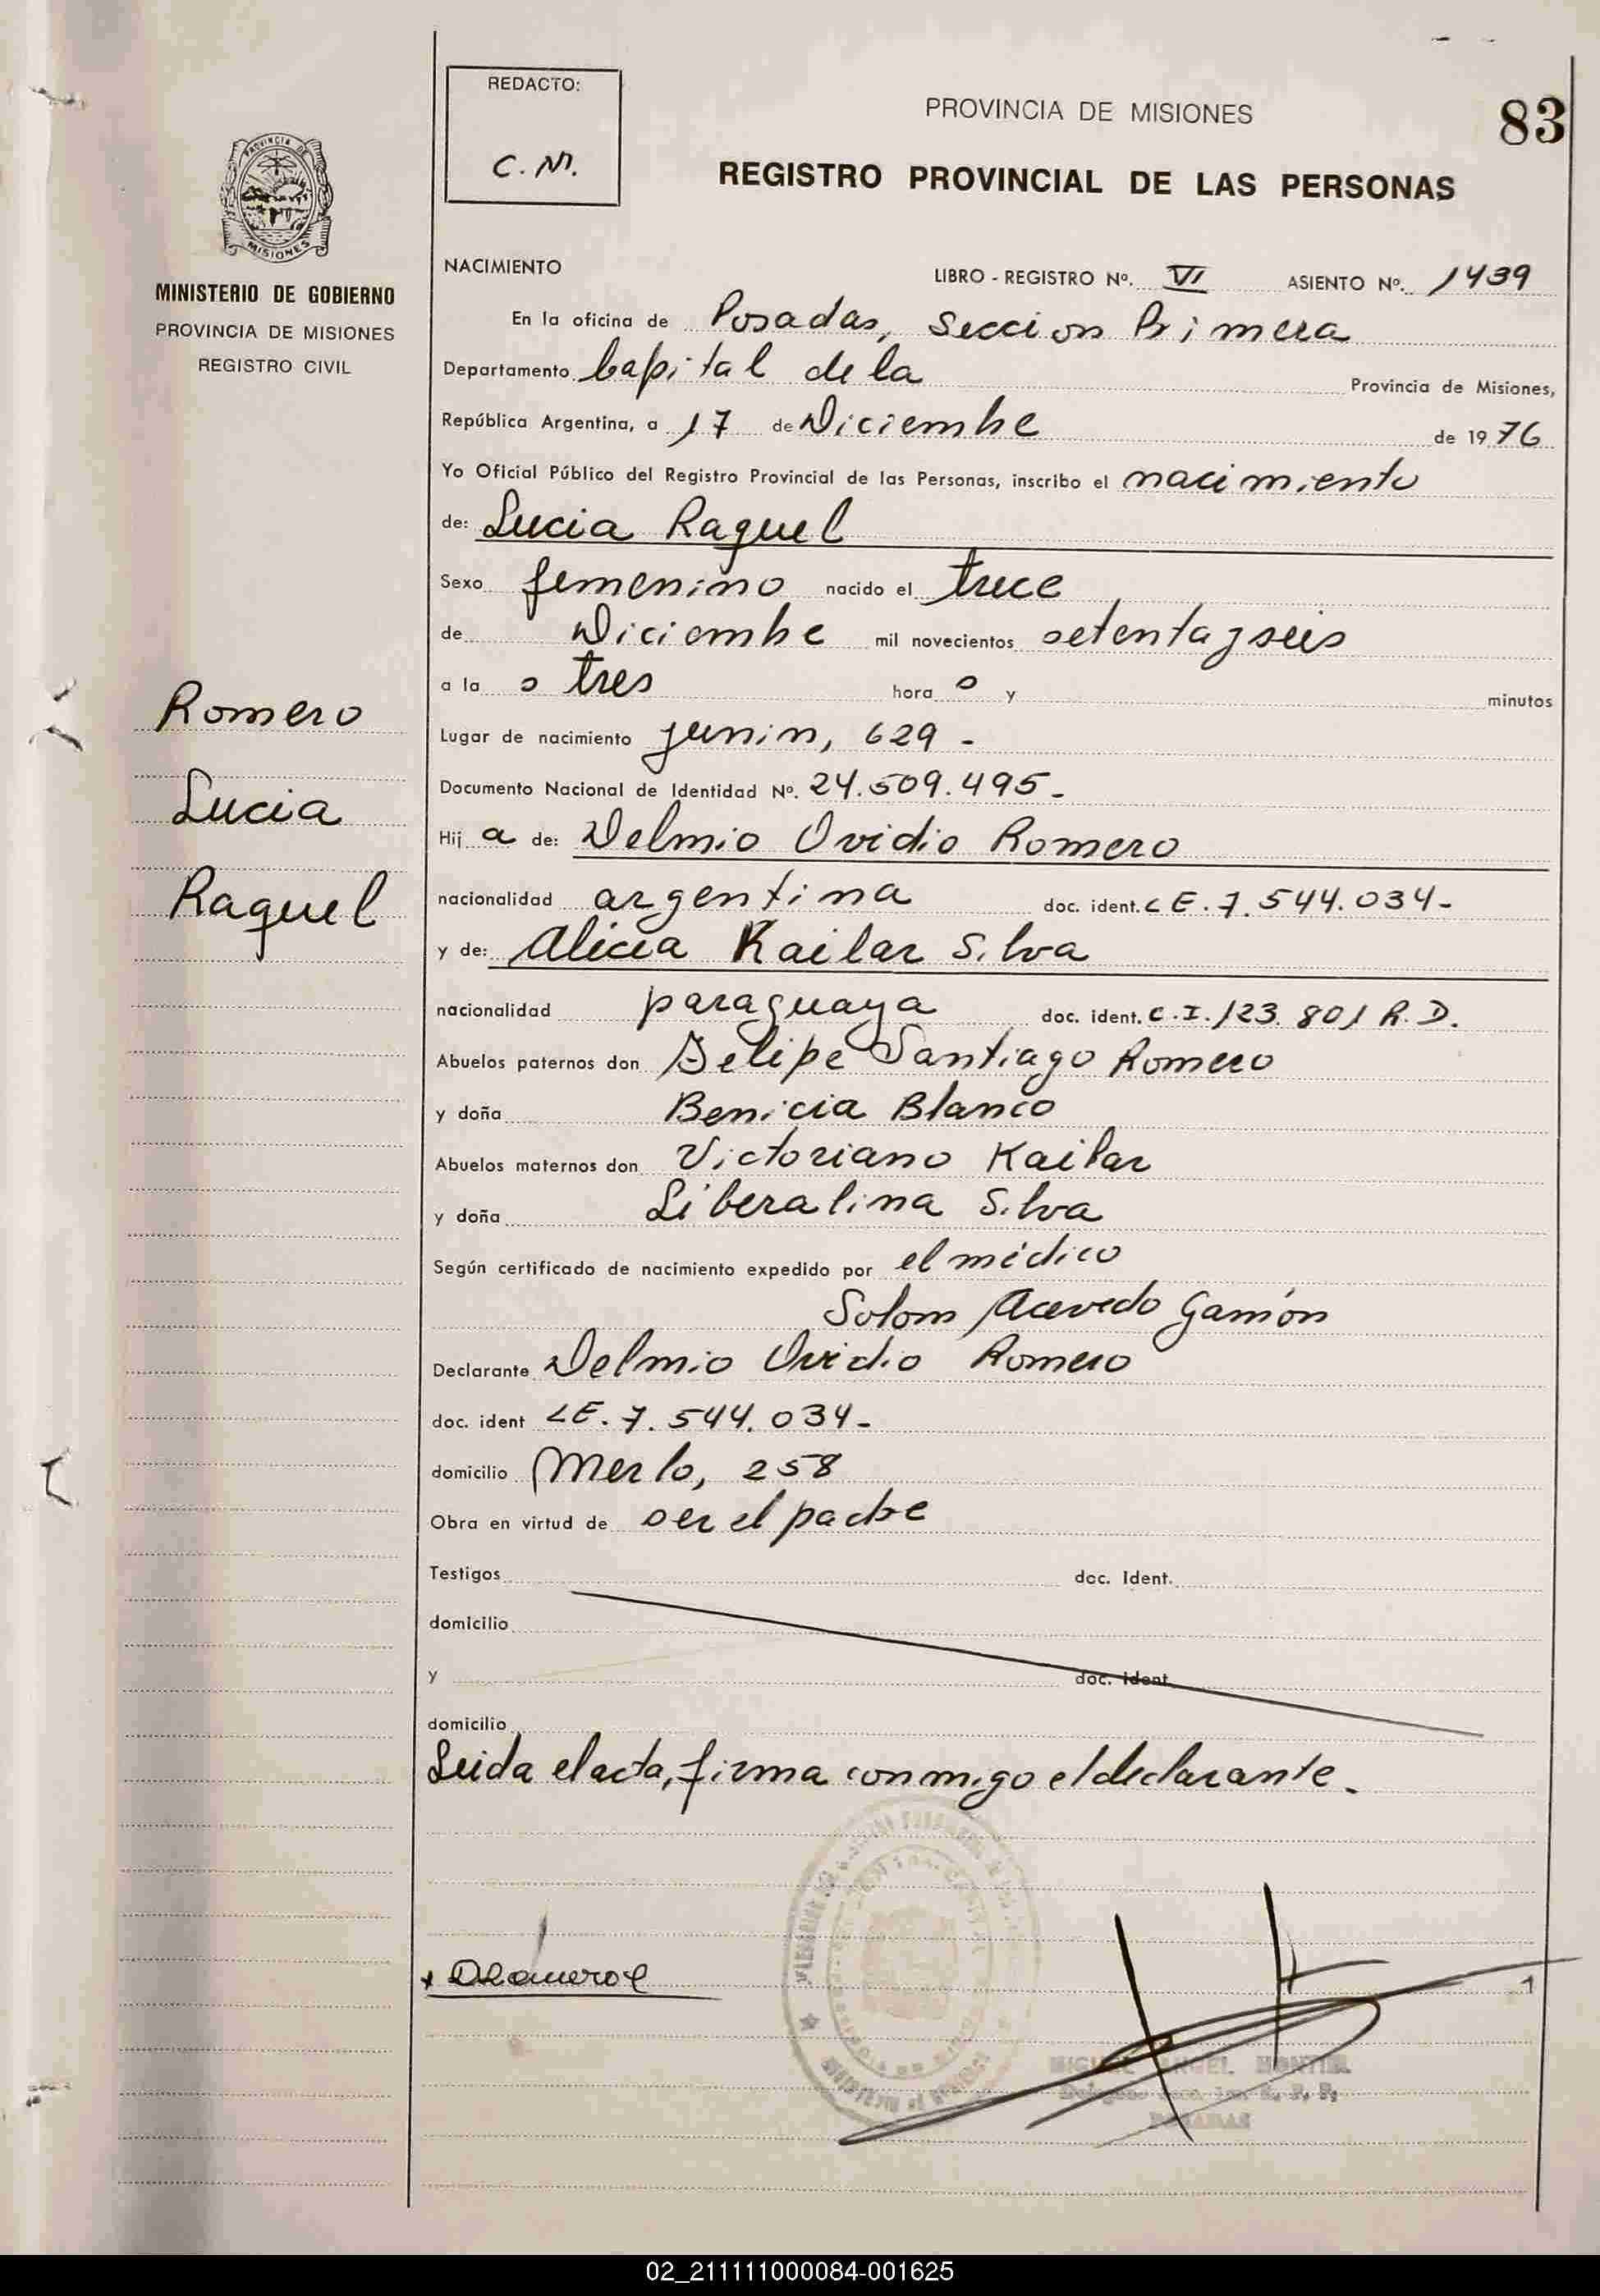 REDACTO:
C. M.
PROVINCIA DE MISIONES
83
REGISTRO PROVINCIAL DE LAS PERSONAS
PROVINCIA DE
MISIONES
MINISTERIO DE GOBIERNO
PROVINCIA DE MISIONES
REGISTRO CIVIL
Romero
Lucia
Raquel
NACIMIENTO LIBRO - REGISTRO Nº. VI ASIENTO Nº. 1439
En la oficina de Posadas, Seccion Primera
Departamento Capital de la Provincia de Misiones,
República Argentina, a 17 de Diciembre de 1976
Yo Oficial Público del Registro Provincial de las Personas, inscribo el nacimiento
de: Lucia Raquel
Sexo femenino nacido el trece
de Diciembre mil novecientos setenta y seis
a la s tres hora s y minutos
Lugar de nacimiento Junin, 629 -
Documento Nacional de Identidad Nº. 24.509.495-
Hij a de: Delmio Ovidio Romero
nacionalidad argentina doc. ident. LE. 7.544.034-
y de: Alicia Kailar Silva
nacionalidad paraguaya doc. ident. C.I. 123.801 R.D.
Abuelos paternos don Felipe Santiago Romero
y doña Benicia Blanco
Abuelos maternos don Victoriano Kailar
y doña Liberalina Silva
Según certificado de nacimiento expedido por el médico
Solom Acevedo Gamón
Declarante Delmio Ovidio Romero
doc. ident LE. 7.544.034-
domicilio Merlo, 258
Obra en virtud de ser el padre
Testigos doc. Ident.
domicilio
y doc. ident
domicilio
Leida el acta, firma conmigo el declarante.
MIGUEL ANGEL MONTIEL
POSADAS
02_211111000084-001625